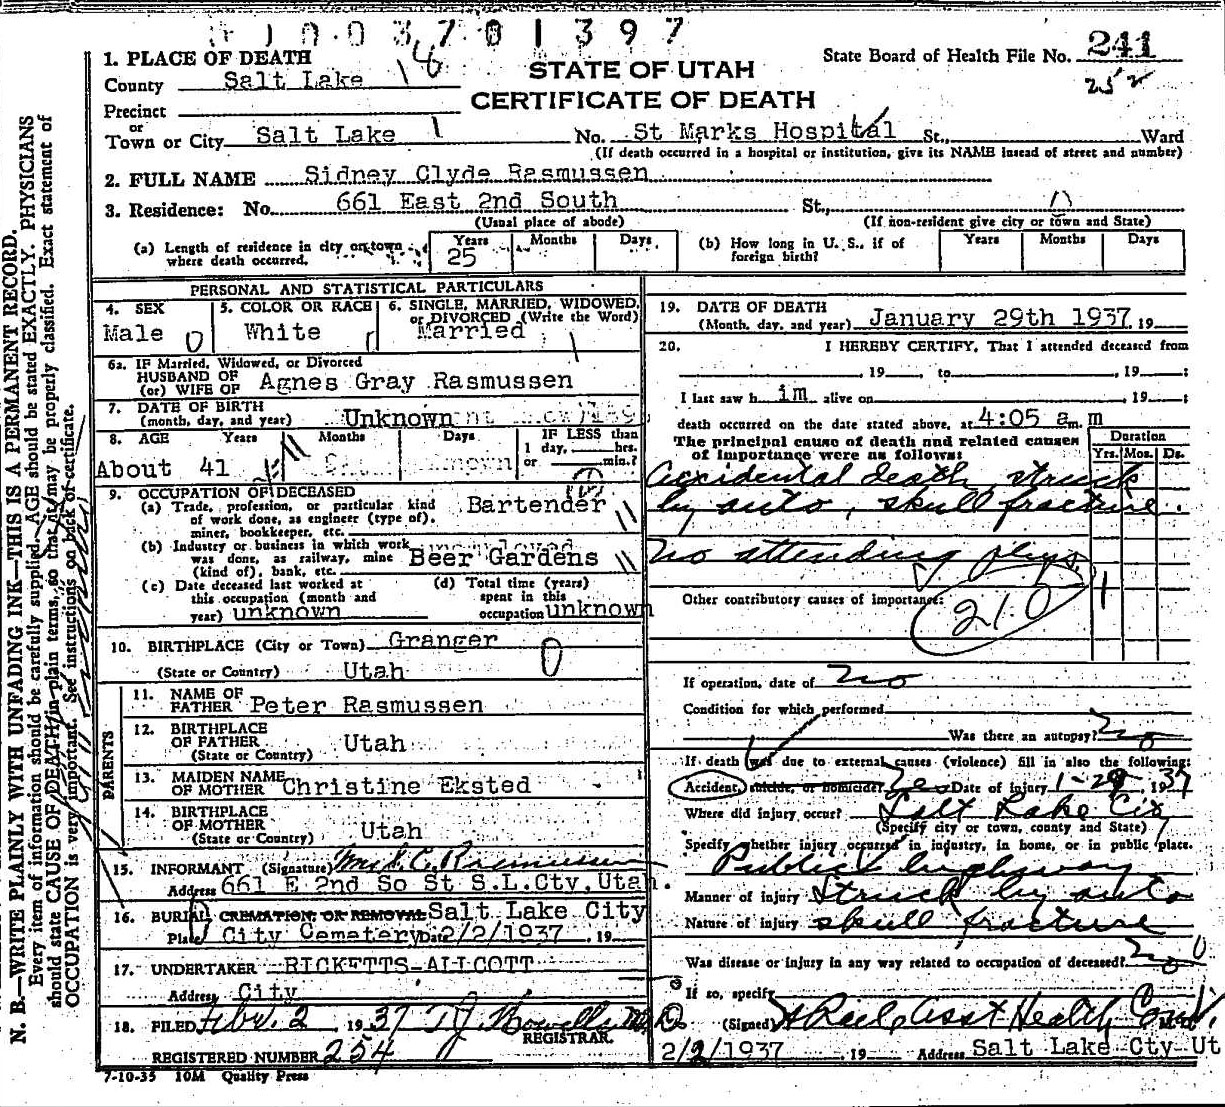 03701397
1. PLACE OF DEATH
County Salt Lake 18
Precinct
or
Town or City Salt Lake 1
STATE OF UTAH
CERTIFICATE OF DEATH
State Board of Health File No. 241
252
No. St Marks Hospital St., Ward
(If death occurred in a hospital or institution, give its NAME insead of street and number)
2. FULL NAME Sidney Clyde Rasmussen
3. Residence: No. 661 East 2nd South St., 0
(Usual place of abode) (If non-resident give city or town and State)
(a) Length of residence in city or town where death occurred. Years 25 Months Days
(b) How long in U. S., if of foreign birth? Years Months Days
PERSONAL AND STATISTICAL PARTICULARS
4. SEX Male 0
5. COLOR OR RACE White
6. SINGLE, MARRIED, WIDOWED, or DIVORCED (Write the Word) Married 1
6a. IF Married, Widowed, or Divorced
HUSBAND OF
(or) WIFE OF Agnes Gray Rasmussen
7. DATE OF BIRTH
(month, day, and year) Unknown
8. AGE Years Months Days IF LESS than
1 day, hrs.
or min.?
About 41
9. OCCUPATION OF DECEASED
(a) Trade, profession, or particular kind
of work done, as engineer (type of),
miner, bookkeeper, etc. Bartender
(b) Industry or business in which work
was done, as railway, mine
(kind of), bank, etc. Beer Gardens
(c) Date deceased last worked at
this occupation (month and
year) unknown
(d) Total time (years)
spent in this
occupation unknown
10. BIRTHPLACE (City or Town) Granger 0
(State or Country) Utah
PARENTS
11. NAME OF
FATHER Peter Rasmussen
12. BIRTHPLACE
OF FATHER Utah
(State or Country)
13. MAIDEN NAME
OF MOTHER Christine Eksted
14. BIRTHPLACE
OF MOTHER Utah
(State or Country)
15. INFORMANT (Signature) Mrs S. C. Rasmussen
Address 661 E 2nd So St S.L.Cty, Utah.
16. BURIAL CREMATION OR REMOVAL Salt Lake City
Place City Cemetery Date 2/2/1937 , 19
17. UNDERTAKER RICKETTS-ALLCOTT
Address City
18. FILED Feb. 2 1937 T.J. Howells M.D.
REGISTRAR.
REGISTERED NUMBER 254
7-10-35 10M Quality Press
19. DATE OF DEATH
(Month, day, and year) January 29th 1937, 19
20. I HEREBY CERTIFY, That I attended deceased from
, 19 , to , 19 ;
I last saw h im alive on , 19 ;
death occurred on the date stated above, at 4:05 a. m
The principal cause of death and related causes
of importance were as follows:
Duration
Yrs. Mos. Ds.
Accidental death, struck
by auto, skull fracture.
No attending phys.
Other contributory causes of importance:
210
If operation, date of no
Condition for which performed
Was there an autopsy? no
If death was due to external causes (violence) fill in also the following:
Accident, suicide, or homicide? Yes Date of injury 1-29, 1937
Where did injury occur? Salt Lake City
(Specify city or town, county and State)
Specify whether injury occurred in industry, in home, or in public place.
Public highway
Manner of injury Struck by auto
Nature of injury skull fracture
Was disease or injury in any way related to occupation of deceased? no 0
If so, specify
(Signed) Asst Health M.D.
2/2/1937 , 19 Address Salt Lake Cty Ut
N. B.—WRITE PLAINLY WITH UNFADING INK—THIS IS A PERMANENT RECORD.
Every item of information should be carefully supplied. AGE should be stated EXACTLY. PHYSICIANS
should state CAUSE OF DEATH in plain terms, so that it may be properly classified. Exact statement of
OCCUPATION is very important. See instructions on back of certificate.